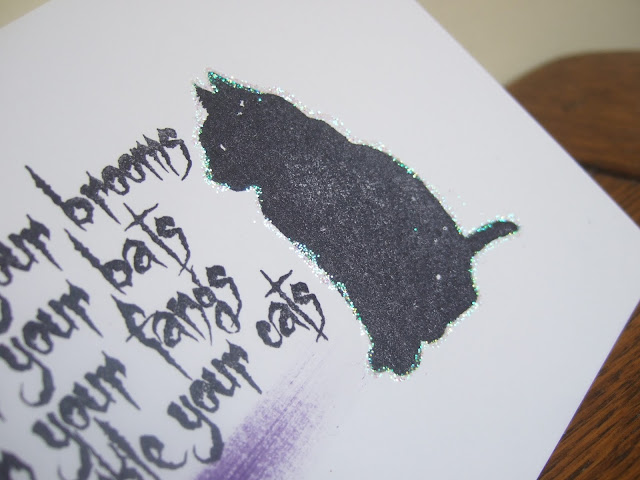 your brooms
your bats
your fangs
your cats